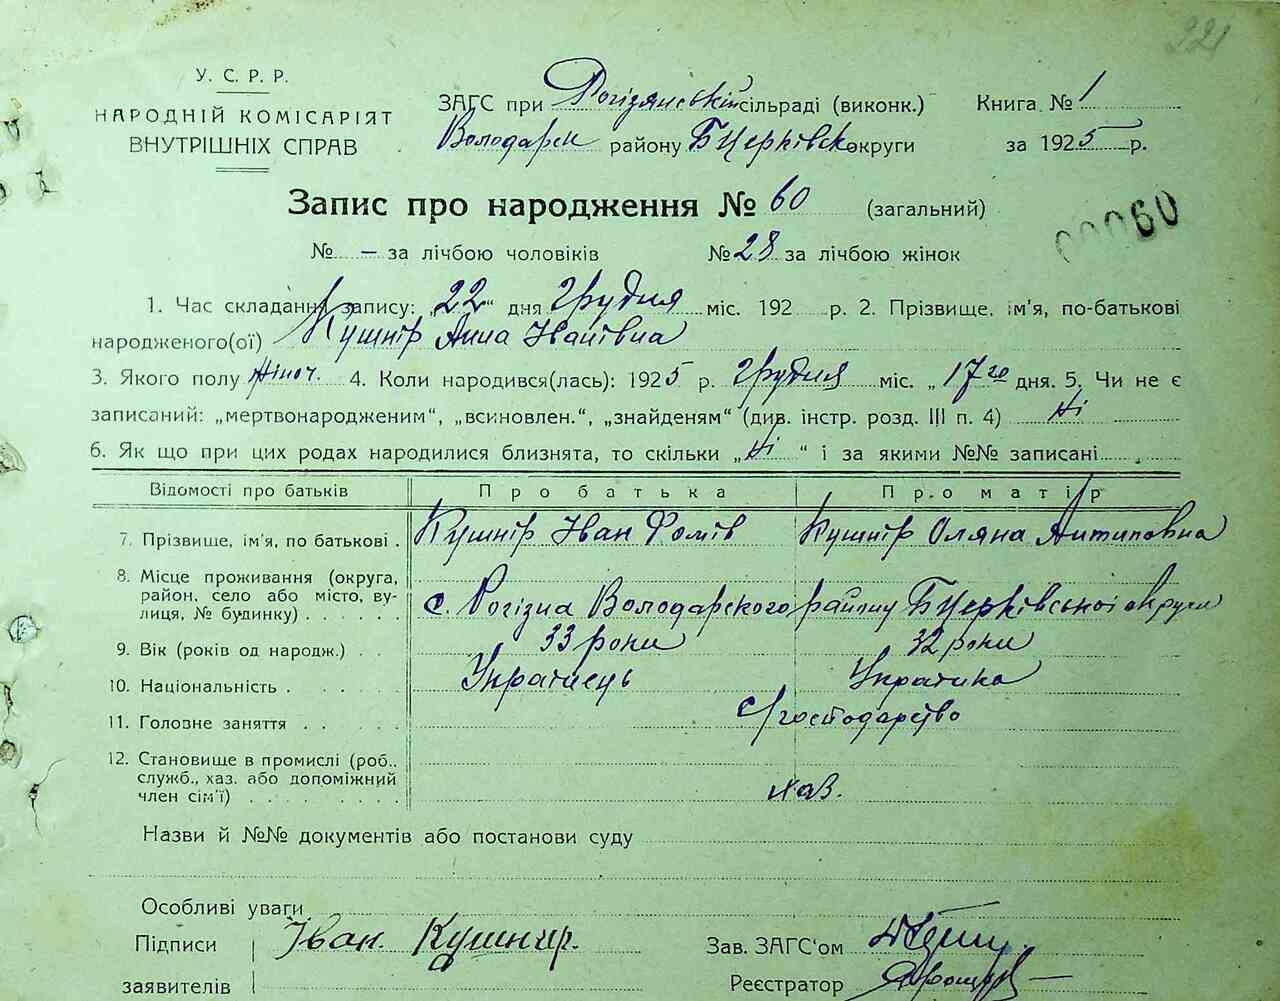 221
У. С. Р. Р.
НАРОДНІЙ КОМІСАРІЯТ
ВНУТРІШНІХ СПРАВ
ЗАГС при Рогізянській сільраді (виконк.) Книга № 1
Володарск району Б Церківск округи за 1925 р.
Запис про народження № 60 (загальний)
00060
№ — за лічбою чоловіків № 28 за лічбою жінок
1. Час складання запису: „22“ дня Грудня міс. 192 р. 2. Прізвище, ім'я, по-батькові
народженого(ої) Кушнір Анна Іванівна
3. Якого полу жіноч. 4. Коли народився(лась): 1925 р. Грудня міс. „17го дня. 5. Чи не є
записаний: „мертвонародженим“, „всиновлен.“, „знайденям“ (див. інстр. розд. III п. 4) Ні
6. Як що при цих родах народилися близнята, то скільки „Ні“ і за якими №№ записані
Відомості про батьків Про батька Про матір
7. Прізвище, ім'я, по батькові . Кушнір Іван Фомів Кушнір Оляна Антиповна
8. Місце проживання (округа,
район, село або місто, ву-
лиця, № будинку) . . . . . . с. Рогізна Володарского району Б Церківської округи
9. Вік (років од народж.) . . 33 роки 32 роки
10. Національність . . . . . . Українець Українка
11. Головне заняття . . . . . . с/господарство
12. Становище в промислі (роб.,
служб., хаз. або допоміжний
член сім'ї) . . . . . . . . . хаз.
Назви й №№ документів або постанови суду
Особливі уваги
Підписи Іван. Кушнир. Зав. ЗАГС'ом
заявителів Реєстратор